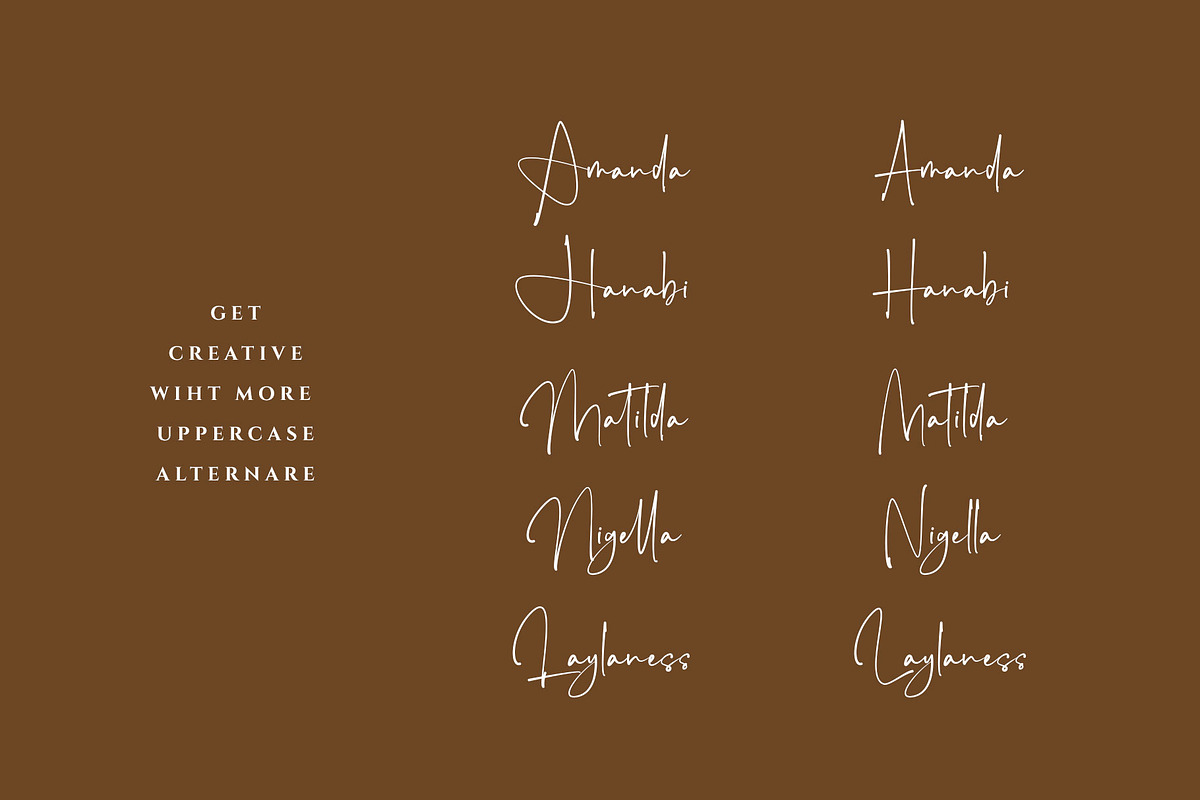 GET
CREATIVE
WIHT MORE
UPPERCASE
ALTERNARE
Amanda
Hanabi
Matilda
Nigella
Laylaness
Amanda
Hanabi
Matilda
Nigella
Laylaness